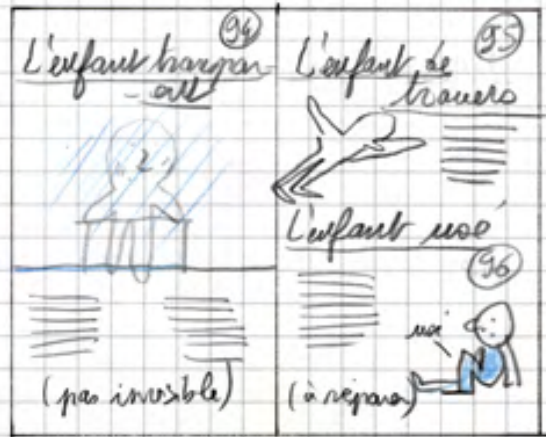 94
L'enfant transpar-
-ent
(pas invisible)
95
L'enfant de
travers
L'enfant usé
96
usé
(à réparer)